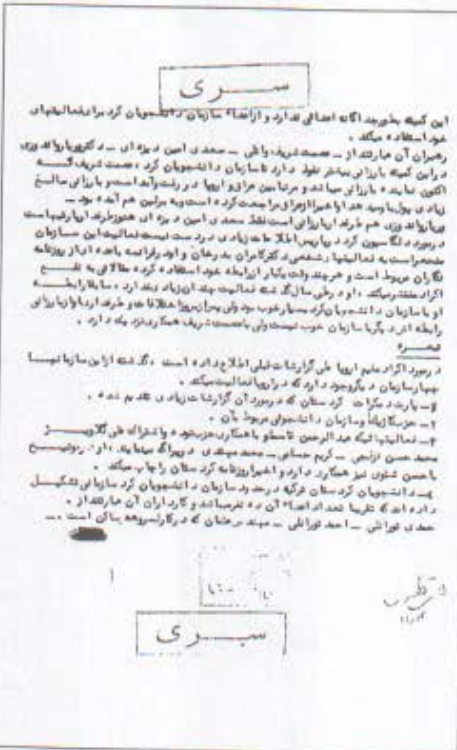 سری
این کمیته بطور جداگانه اعضائی ندارد و از اعضاء سازمان دانشجویان کرد برای فعالیتهای
خود استفاده میکند .
رهبران آن عبارتند از ــ عصمت شریف وانلی ــ سعدی امین دیزه ای ــ دکتر
در این کمیته بارزانی بیشتر نفوذ دارد تا سازمان دانشجویان کرد ، عصمت شریف که
اکنون نماینده بارزانی میباشد و مرتبا بین عراق و اروپا در رفت و آمد است و بارزانی مبالغ
زیادی پول باو میدهد اخیرا از عراق مراجعت کرده است و به برلین هم آمده بود ــ
هم طرفدار بارزانی است فقط سعدی امین دیزه ای هنوز طرفدار
در مورد کرد در پاریس اطلاعات زیادی در دست نیست فعالیت این سازمان
منحصر است به فعالیتهای شخصی دکتر کامران بدرخان و او در فرانسه با عده ای از روزنامه
نگاران مربوط است و هر چند وقت یکبار از رابطه خود استفاده کرده مقالاتی به نفع
اکراد منتشر میکند ، او در طی سال گذشته فعالیت چندان زیادی ندارد ، سابقا رابطه
او با سازمان دانشجویان کرد بسیار خوب بود ولی پس از بروز اختلافات و طرفداری او از بارزانی
رابطه اش دیگر با سازمان خوب نیست ولی با عصمت شریف همکاری نزدیک دارد .
تبصره
در مورد اکراد مقیم اروپا طی گزارشات قبلی اطلاع داده است ، گذشته از این سازمانها
چهار سازمان دیگر وجود دارد که در اروپا فعالیت میکند .
۱ــ پارت دمکرات کردستان که در مورد آن گزارشات زیادی تقدیم شده .
۲ــ حزب کاژیک و سازمان دانشجوئی مربوط بآن .
۳ــ فعالیتهائیکه عبدالرحمن قاسملو با همکاری حزب توده و با اشتراک علی گلاویژ
محمد حسن ــ کریم حسامی ــ محمد مهتدی در پراگ مینمایند ،
با حسن نیز همکاری دارد و اخیرا روزنامه کردستان را چاپ میکند .
٤ــ دانشجویان کردستان ترکیه در حدود سازمان دانشجویان کرد سازمانی تشکیل
داده اند که تقریبا تعداد اعضاء آن ده نفر میباشد و کارداران آن عبارتند از .
حمدی تورانلی ــ احمد تورانلی ــ مهندس عثمان که در ساکن است ــ
سری